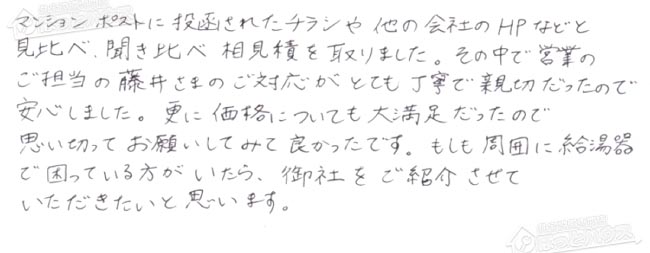 マンションポストに投函されたチラシや他の会社のHPなどと
見比べ、聞き比べ相見積を取りました。その中で営業の
ご担当の藤井さまのご対応がとても丁寧で親切だったので
安心しました。更に価格についても大満足だったので
思い切ってお願いしてみて良かったです。もしも周囲に給湯器
で困っている方がいたら、御社をご紹介させて
いただきたいと思います。